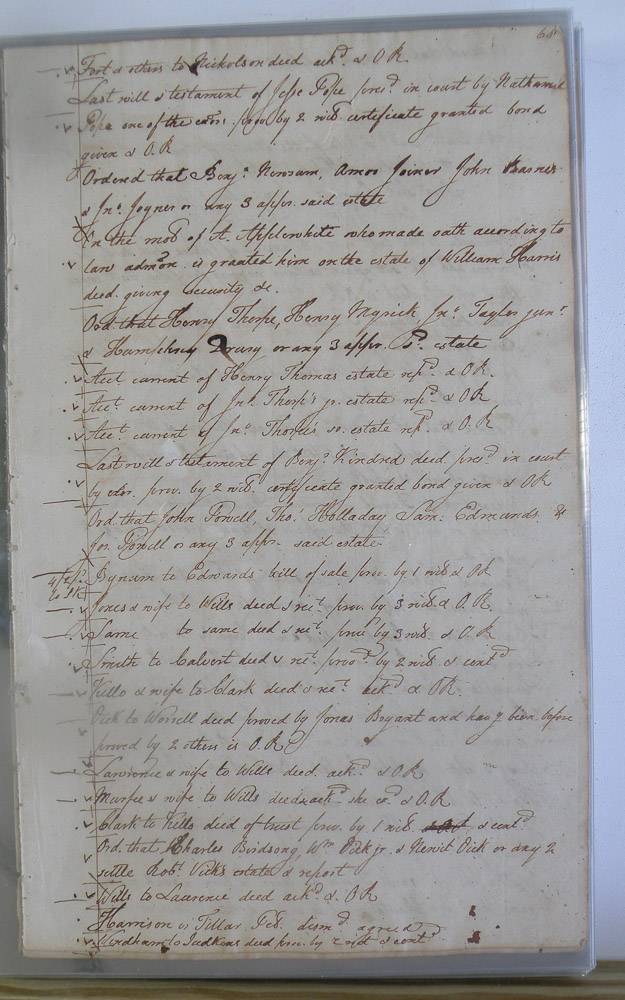 Foot & others to Nicholson deed ackd. & O.R.
Last will & testament of Jesse Pope presd. in court by Nathaniel
Pope one of the exrs. prov. by 2 wits. certificate granted bond
given & O.R
Ordered that Benja. Newsum, Amos Joiner John Barnes
& Jno. Joyner or any 3 appr. said estate
On the moto. of A. Applewhite who made oath according to
law admon. is granted him on the estate of William Harris
decd. giving security &c.
Ord. that Henry Thorpe, Henry Myrick, Jno. Taylor junr.
& Humphrey Drury or any 3 appr. sd. estate
Acct current of Henry Thomas estate retd. & O.R.
Acct. current of Jno. Thorp's jr. estate retd. & O.R
Acct. current of Jno. Thorpe's sr. estate retd. & O.R
Last will & testament of Benja. Kindred decd. presd. in court
by exor. prov. by 2 wits. certificate granted bond given & O.R
Ord. that John Powell, Thos. Holladay Saml. Edmunds &
Powell or any 3 appr. said estate
Bynum to Edwards bill of sale prov. by 1 wit & O.R
Jones & wife to Wills deed & rect. prov. by 3 wits. & O.R.
Same to same deed & rect. prov. by 3 wits. & O.R
Smith to Calvert deed & rect. provd. by 2 wits. & contd
Kello & wife to Clark deed & rect. ackd. & O.R.
Vick to Worrell deed proved by Jonas Bryant and havg. been before
proved by 2 others is O.R
Lawrence & wife to Wills deed. ackd. & O.R
Murfee & wife to Wills deed & ackd. she exd. & O.R
Clark to Kello deed of trust prov. by 1 wit. & contd
Ord. that Charles Birdsong, Wm Vick jr. & Newit Vick or any 2
settle Robt. Vick's estate & report
Wills to Lawrence deed ackd. & O.R
Harrison vs Tillar dismd. agreed
to Judkins deed prov. by 2 wits & contd